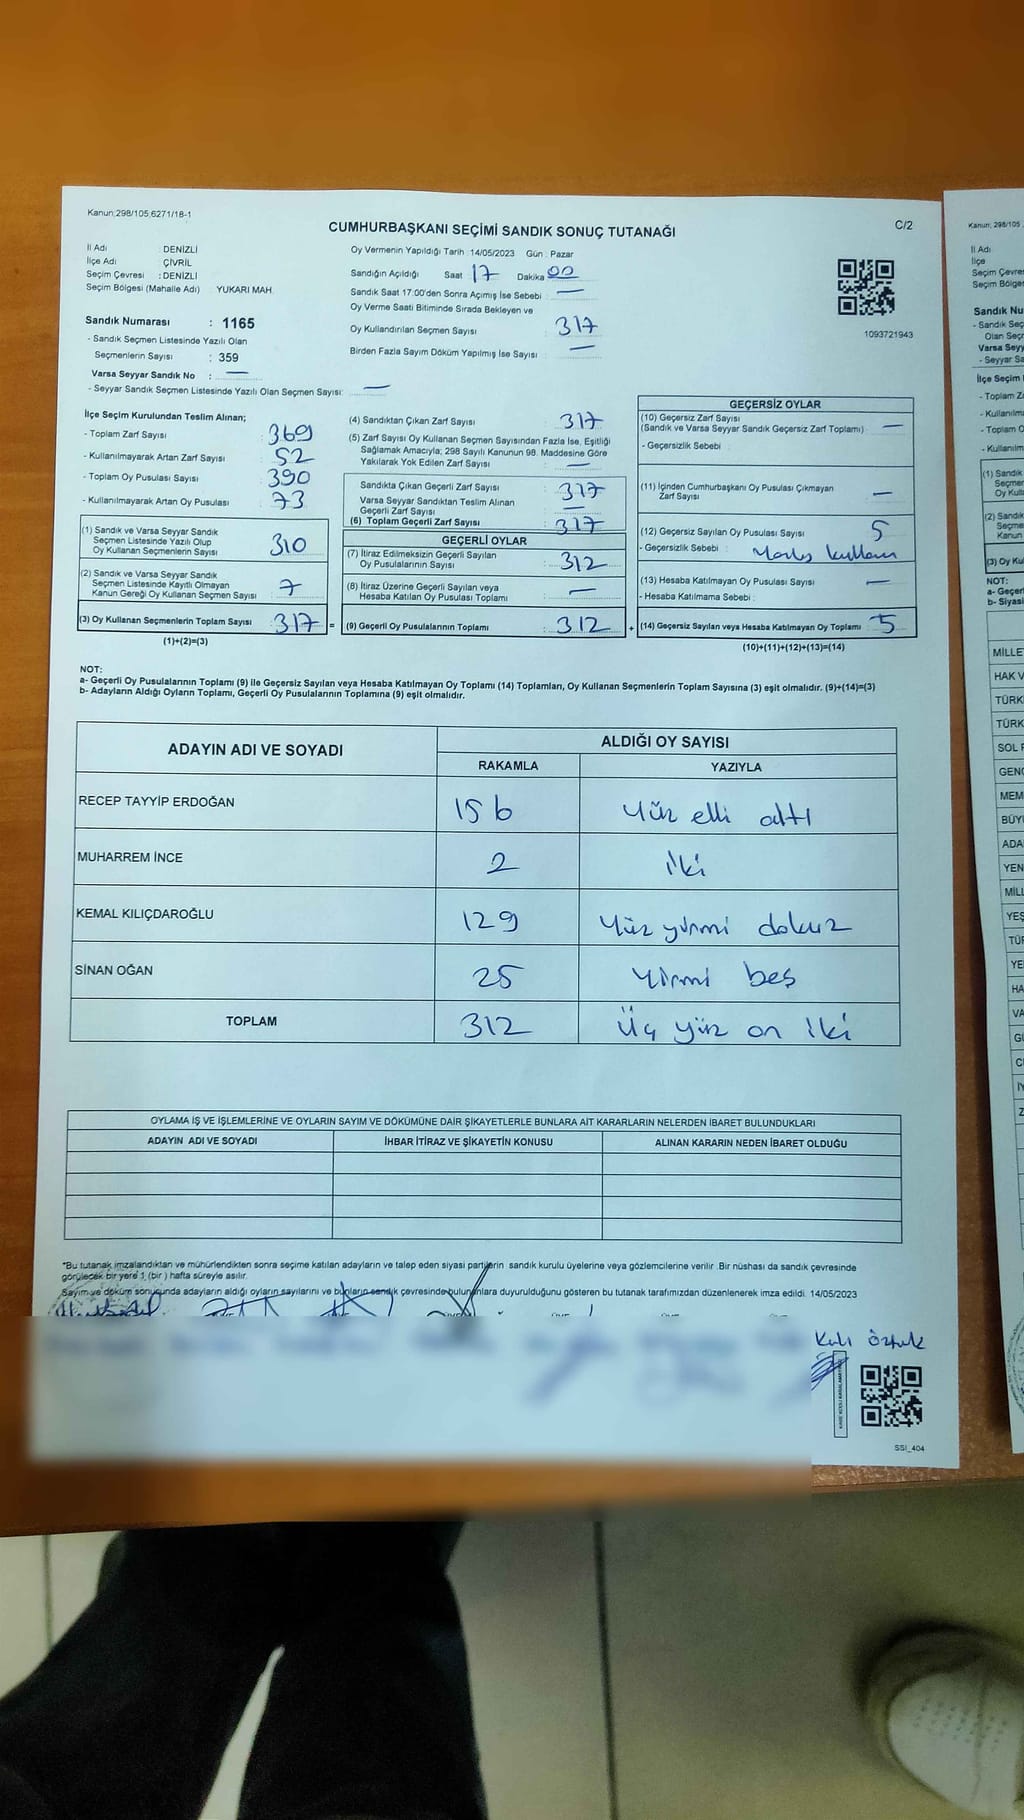 Kanun;298/105,6271/18-1
CUMHURBAŞKANI SEÇİMİ SANDIK SONUÇ TUTANAĞI
C/2
İl Adı DENİZLİ
İlçe Adı ÇİVRİL
Seçim Çevresi : DENİZLİ
Seçim Bölgesi (Mahalle Adı) : YUKARI MAH.
Sandık Numarası : 1165
- Sandık Seçmen Listesinde Yazılı Olan
Seçmenlerin Sayısı : 359
Varsa Seyyar Sandık No : —
- Seyyar Sandık Seçmen Listesinde Yazılı Olan Seçmen Sayısı: —
Oy Vermenin Yapıldığı Tarih : 14/05/2023 Gün : Pazar
Sandığın Açıldığı Saat 17 Dakika 00
Sandık Saat 17:00'den Sonra Açımış İse Sebebi : —
Oy Verme Saati Bitiminde Sırada Bekleyen ve
Oy Kullandırılan Seçmen Sayısı : 317
Birden Fazla Sayım Döküm Yapılmış İse Sayısı : —
1093721943
İlçe Seçim Kurulundan Teslim Alınan;
- Toplam Zarf Sayısı : 369
- Kullanılmayarak Artan Zarf Sayısı : 52
- Toplam Oy Pusulası Sayısı : 390
- Kullanılmayarak Artan Oy Pusulası : 73
(1) Sandık ve Varsa Seyyar Sandık
Seçmen Listesinde Yazılı Olup
Oy Kullanan Seçmenlerin Sayısı : 310
(2) Sandık ve Varsa Seyyar Sandık
Seçmen Listesinde Kayıtlı Olmayan
Kanun Gereği Oy Kullanan Seçmen Sayısı : 7
(3) Oy Kullanan Seçmenlerin Toplam Sayısı : 317 =
(1)+(2)=(3)
(4) Sandıktan Çıkan Zarf Sayısı : 317
(5) Zarf Sayısı Oy Kullanan Seçmen Sayısından Fazla İse, Eşitliği
Sağlamak Amacıyla; 298 Sayılı Kanunun 98. Maddesine Göre
Yakılarak Yok Edilen Zarf Sayısı : —
Sandıkta Çıkan Geçerli Zarf Sayısı : 317
Varsa Seyyar Sandıktan Teslim Alınan
Geçerli Zarf Sayısı : —
(6) Toplam Geçerli Zarf Sayısı : 317
GEÇERLİ OYLAR
(7) İtiraz Edilmeksizin Geçerli Sayılan
Oy Pusulalarının Sayısı : 312
(8) İtiraz Üzerine Geçerli Sayılan veya
Hesaba Katılan Oy Pusulası Toplamı : —
(9) Geçerli Oy Pusulalarının Toplamı : 312 +
GEÇERSİZ OYLAR
(10) Geçersiz Zarf Sayısı
(Sandık ve Varsa Seyyar Sandık Geçersiz Zarf Toplamı) : —
- Geçersizlik Sebebi :
(11) İçinden Cumhurbaşkanı Oy Pusulası Çıkmayan
Zarf Sayısı : —
(12) Geçersiz Sayılan Oy Pusulası Sayısı : 5
- Geçersizlik Sebebi : Yanlış kullanı
(13) Hesaba Katılmayan Oy Pusulası Sayısı : —
- Hesaba Katılmama Sebebi :
(14) Geçersiz Sayılan veya Hesaba Katılmayan Oy Toplamı : 5
(10)+(11)+(12)+(13)=(14)
NOT:
a- Geçerli Oy Pusulalarının Toplamı (9) ile Geçersiz Sayılan veya Hesaba Katılmayan Oy Toplamı (14) Toplamları, Oy Kullanan Seçmenlerin Toplam Sayısına (3) eşit olmalıdır. (9)+(14)=(3)
b- Adayların Aldığı Oyların Toplamı, Geçerli Oy Pusulalarının Toplamına (9) eşit olmalıdır.
ADAYIN ADI VE SOYADI
ALDIĞI OY SAYISI
RAKAMLA YAZIYLA
RECEP TAYYİP ERDOĞAN 156 Yüz elli altı
MUHARREM İNCE 2 iki
KEMAL KILIÇDAROĞLU 129 Yüz yirmi dokuz
SİNAN OĞAN 25 Yirmi beş
TOPLAM 312 Üç yüz on iki
OYLAMA İŞ VE İŞLEMLERİNE VE OYLARIN SAYIM VE DÖKÜMÜNE DAİR ŞİKAYETLERLE BUNLARA AİT KARARLARIN NELERDEN İBARET BULUNDUKLARI
ADAYIN ADI VE SOYADI İHBAR İTİRAZ VE ŞİKAYETİN KONUSU ALINAN KARARIN NEDEN İBARET OLDUĞU
*Bu tutanak imzalandıktan ve mühürlendikten sonra seçime katılan adayların ve talep eden siyasi partilerin sandık kurulu üyelerine veya gözlemcilerine verilir .Bir nüshası da sandık çevresinde
görülecek bir yere 1 (bir ) hafta süreyle asılır.
Sayım ve döküm sonucunda adayların aldığı oyların sayılarını ve bunların sandık çevresinde bulunanlara duyurulduğunu gösteren bu tutanak tarafımızdan düzenlenerek imza edildi. 14/05/2023
SSI_404
Kanun; 298/105
İl Adı
İlçe
Seçim Çevresi
Seçim Bölges
Sandık Nu
- Sandık Seç
Olan Seç
Varsa Seyy
- Seyyar Sa
İlçe Seçim
- Toplam Z
- Kullanılm
- Toplam O
- Kullanılm
(1) Sandık
Seçme
Oy Ku
(2) Sandık
Seçme
Kanun
(3) Oy Ku
NOT:
a- Geçer
b- Siyas
MİLLE
HAK V
TÜRK
TÜRK
SOL P
GENÇ
MEM
BÜYÜ
ADA
YEN
MİLL
YEŞ
TÜR
YE
HA
VA